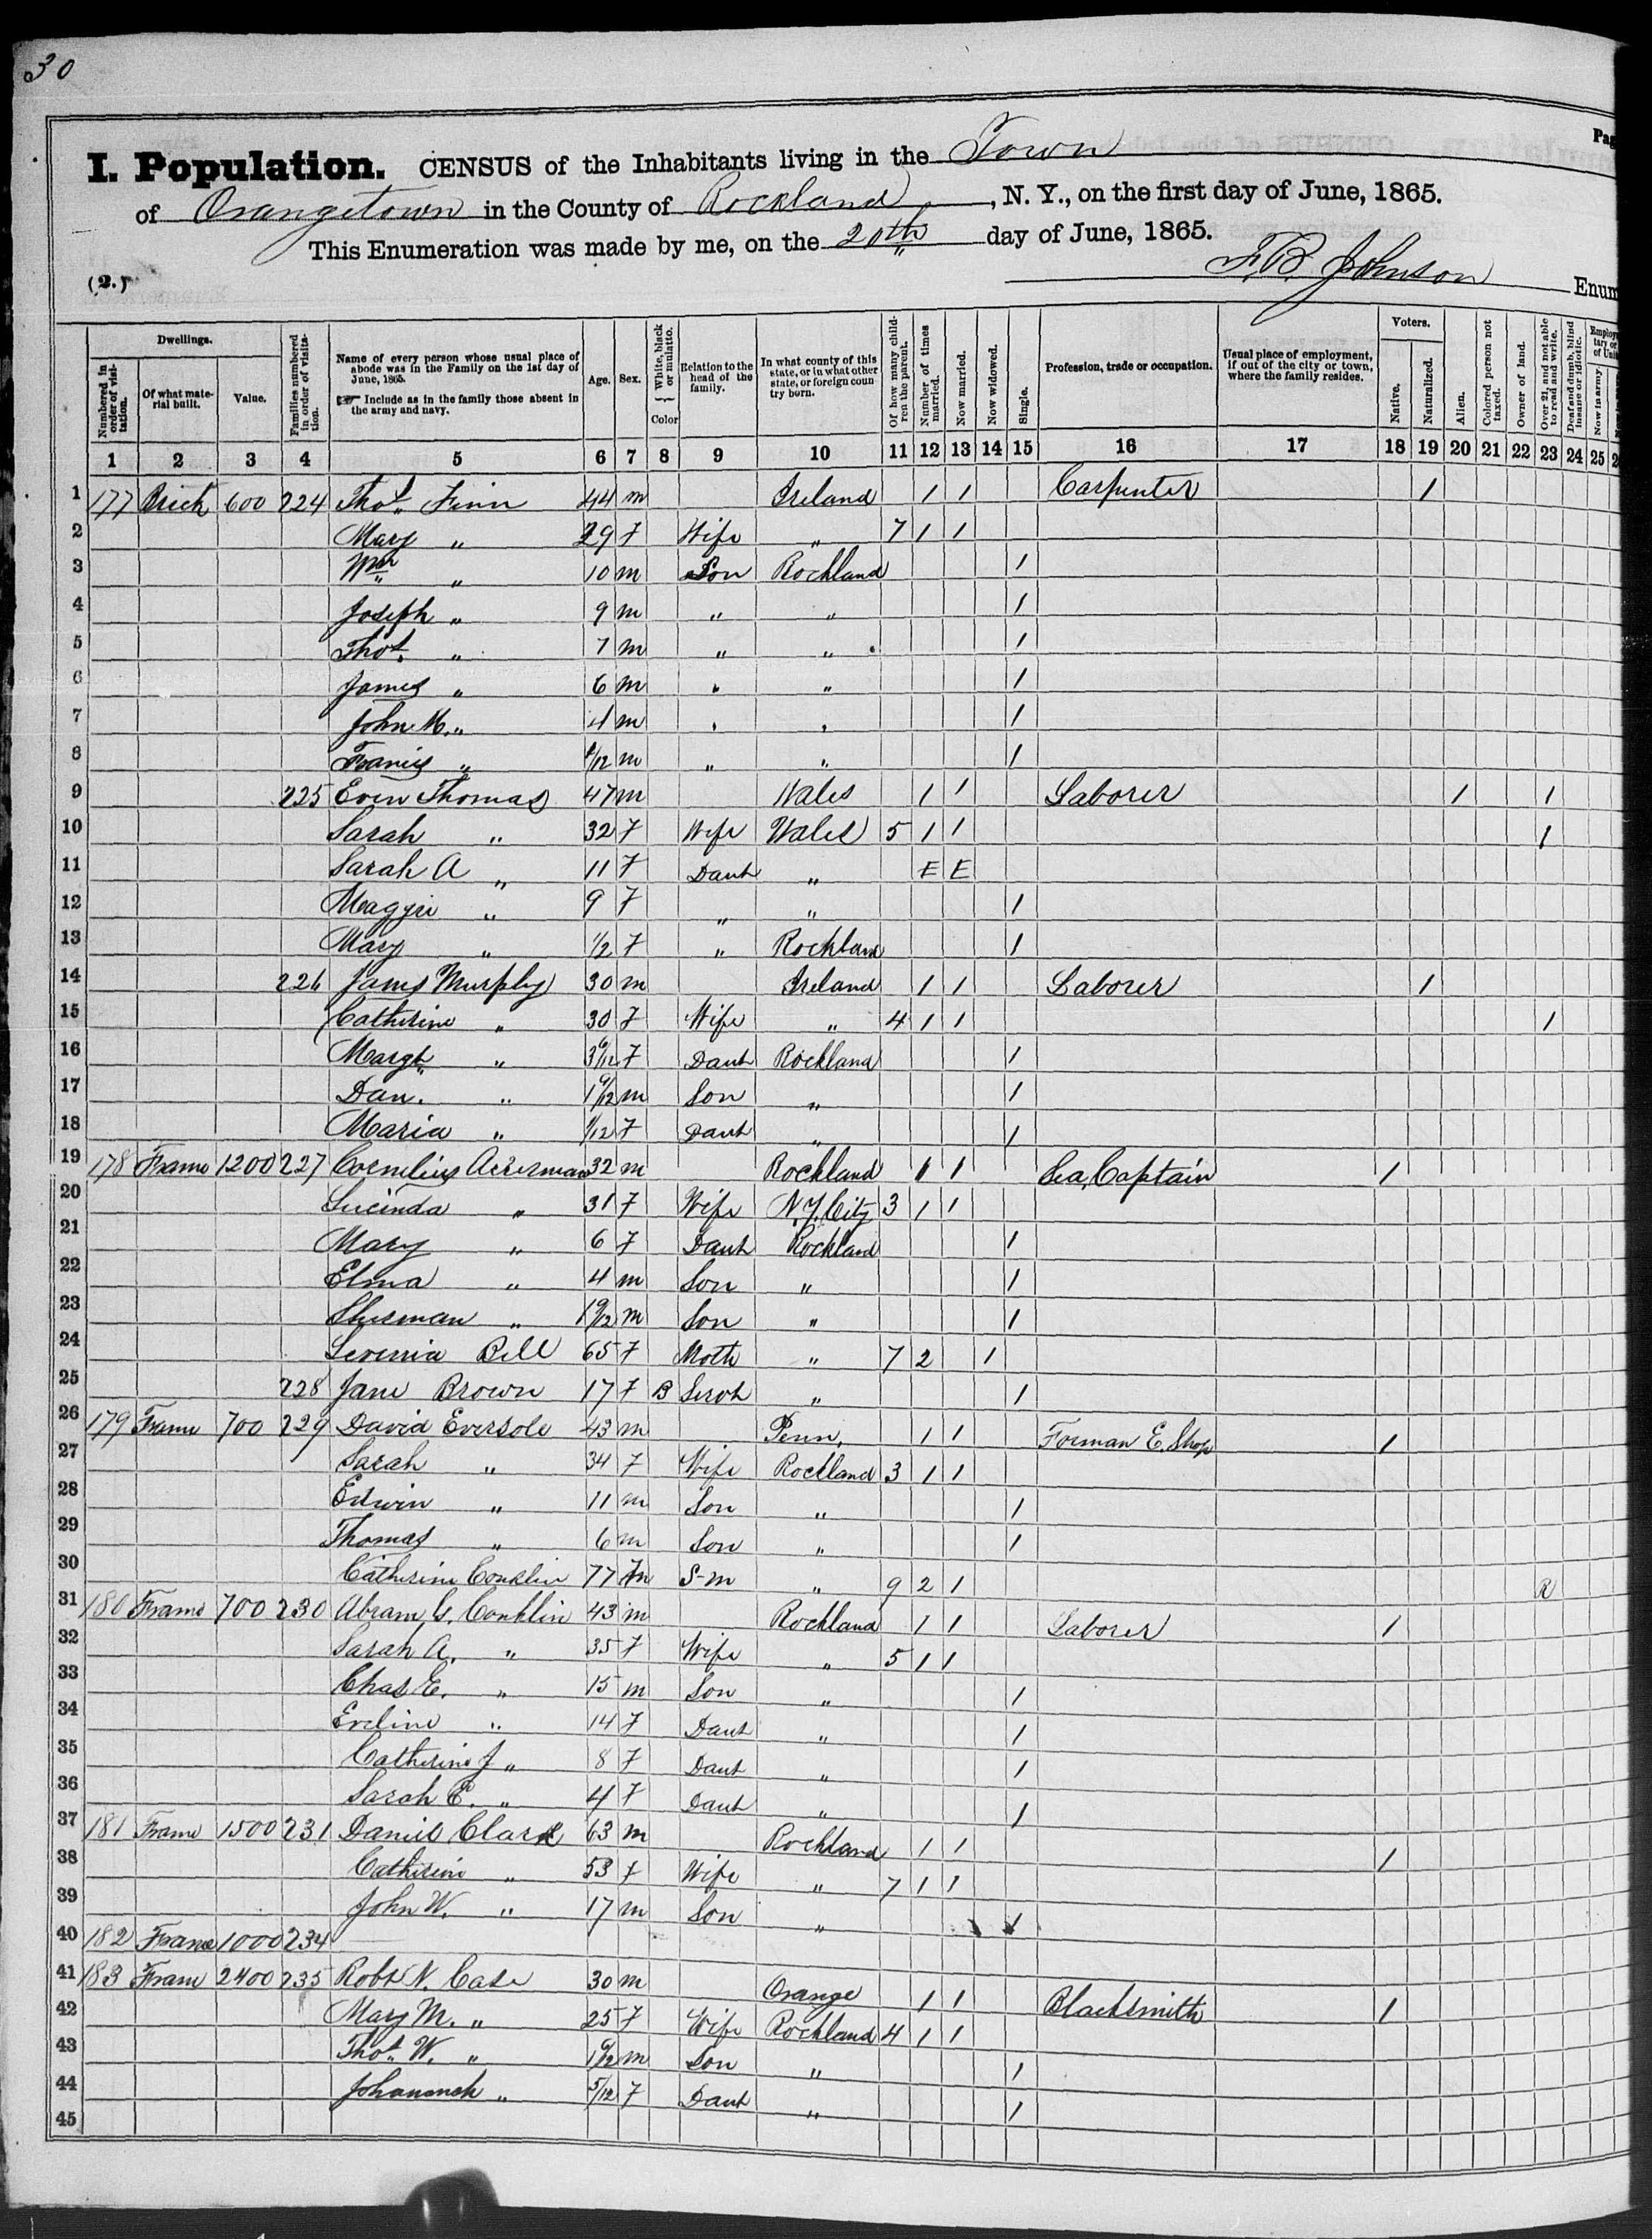 30
Pag
I. Population. CENSUS of the Inhabitants living in the Town
of Orangetown in the County of Rockland, N. Y., on the first day of June, 1865.
This Enumeration was made by me, on the 20th day of June, 1865.
(2.) Johnson Enum
Dwellings. Voters.
Numbered in order of visitation. Of what material built. Value. Families numbered in order of visitation. Name of every person whose usual place of abode was in the Family on the 1st day of June, 1865. Include as in the family those absent in the army and navy. Age. Sex. White, black or mulatto. Color Relation to the head of the family. In what county of this state, or in what other state, or foreign coun try born. Of how many children the parent. Number of times married. Now married. Now widowed. Single. Profession, trade or occupation. Usual place of employment, if out of the city or town, where the family resides. Native. Naturalized. Alien. Colored person not taxed. Owner of land. Over 21, and not able to read and write. Deaf and dumb, blind insane or idiotic. Now in army
1 2 3 4 5 6 7 8 9 10 11 12 13 14 15 16 17 18 19 20 21 22 23 24 25 2
1 177 Brick 600 224 Thos. Finn 44 m Ireland 1 1 Carpenter 1
2 Mary " 29 F Wife " 7 1 1
3 Wm " 10 m Son Rockland 1
4 Joseph " 9 m " " 1
5 Thos. " 7 m " " 1
6 James " 6 m " " 1
7 John M. " 4 m " " 1
8 Francis " /12 m " " 1
9 225 Even Thomas 47 m Wales 1 1 Laborer 1 1
10 Sarah " 32 F Wife Wales 5 1 1 1
11 Sarah A " 11 F Daut " E E
12 Maggie " 9 F " " 1
13 Mary " 1/2 F " Rockland 1
14 226 James Murphy 30 m Ireland 1 1 Laborer 1
15 Catherine " 30 F Wife " 4 1 1 1
16 Margt " 3 /12 F Daut Rockland 1
17 Dan. " 1 /12 m Son " 1
18 Maria " 1/12 F Daut " 1
19 178 Frame 1200 227 Cornelius Ackerman 32 m Rockland 1 1 Sea Captain 1
20 Lucinda " 31 F Wife N.Y. City 3 1 1
21 Mary " 6 F Daut Rockland 1
22 Elma " 4 m Son " 1
23 Sherman " 1 /12 m Son " 1
24 Bell 65 F Moth " 7 2 1
25 228 Jane Brown 17 F B Servt " 1
26 179 Frame 700 229 David Eversole 43 m Penn. 1 1 Forman E. Shop 1
27 Sarah " 34 F Wife Rockland 3 1 1
28 Edwin " 11 m Son " 1
29 Thomas " 6 m Son " 1
30 Catherine Conklin 77 S-m " 9 2 1 R
31 180 Frame 700 230 Abram G. Conklin 43 m Rockland 1 1 Laborer 1
32 Sarah A. " 35 F Wife " 5 1 1
33 Chas E. " 15 m Son " 1
34 Eveline " 14 F Daut " 1
35 Catherine J " 8 F Daut " 1
36 Sarah E. " 4 F Daut " 1
37 181 Frame 1500 231 Daniel Clark 63 m Rockland 1 1 1
38 Catherine " 53 F Wife " 7 1 1
39 John W. " 17 m Son " 1
40 182 Frame 1000 234
41 183 Fram 2400 235 Robt N. Case 30 m Orange 1 1 Blacksmith 1
42 Mary M. " 25 F Wife Rockland 4 1 1
43 Thos. W. " 1 /12 m Son " 1
44 " 5/12 F Daut " 1
45